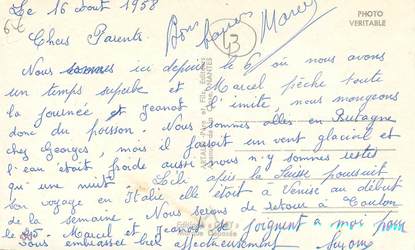 Le 16 août 1958
PHOTO
VERITABLE
Bons baisers
Marcel
13
Chers Parents.
Nous sommes ici depuis le 6 où nous avons
un temps superbe et Marcel pêche toute
la journée et Jeanot l'imite, nous mangeons
donc du poisson. Nous sommes allés en Bretagne
chez Georges, mais il faisait un vent glacial et
l'eau était froide aussi nous n'y sommes restés
qu'une nuit. Lili après la Suisse poursuit
son voyage en Italie elle était à Venise au début
de la semaine. Nous serons de retour à Toulon
le 25. Marcel et Jeanot se joignent à moi pour
vous embrasser bien affectueusement